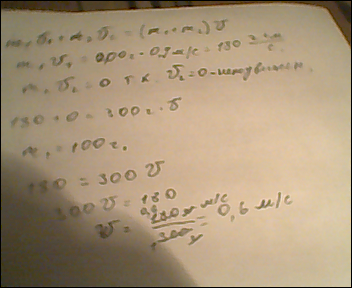 m₁v₁ + m₂v₂ = (m₁+m₂)v
m₁v₁ = 200г · 0,9 м/с = 180 г·м/с
m₂v₂ = 0 т.к. v₂ = 0 - неподвижен.
180 + 0 = 300г · v
m₂ = 100г,
180 = 300 v
300 v = 180
v = 180 г м/с / 300 г = 0,6 м/с